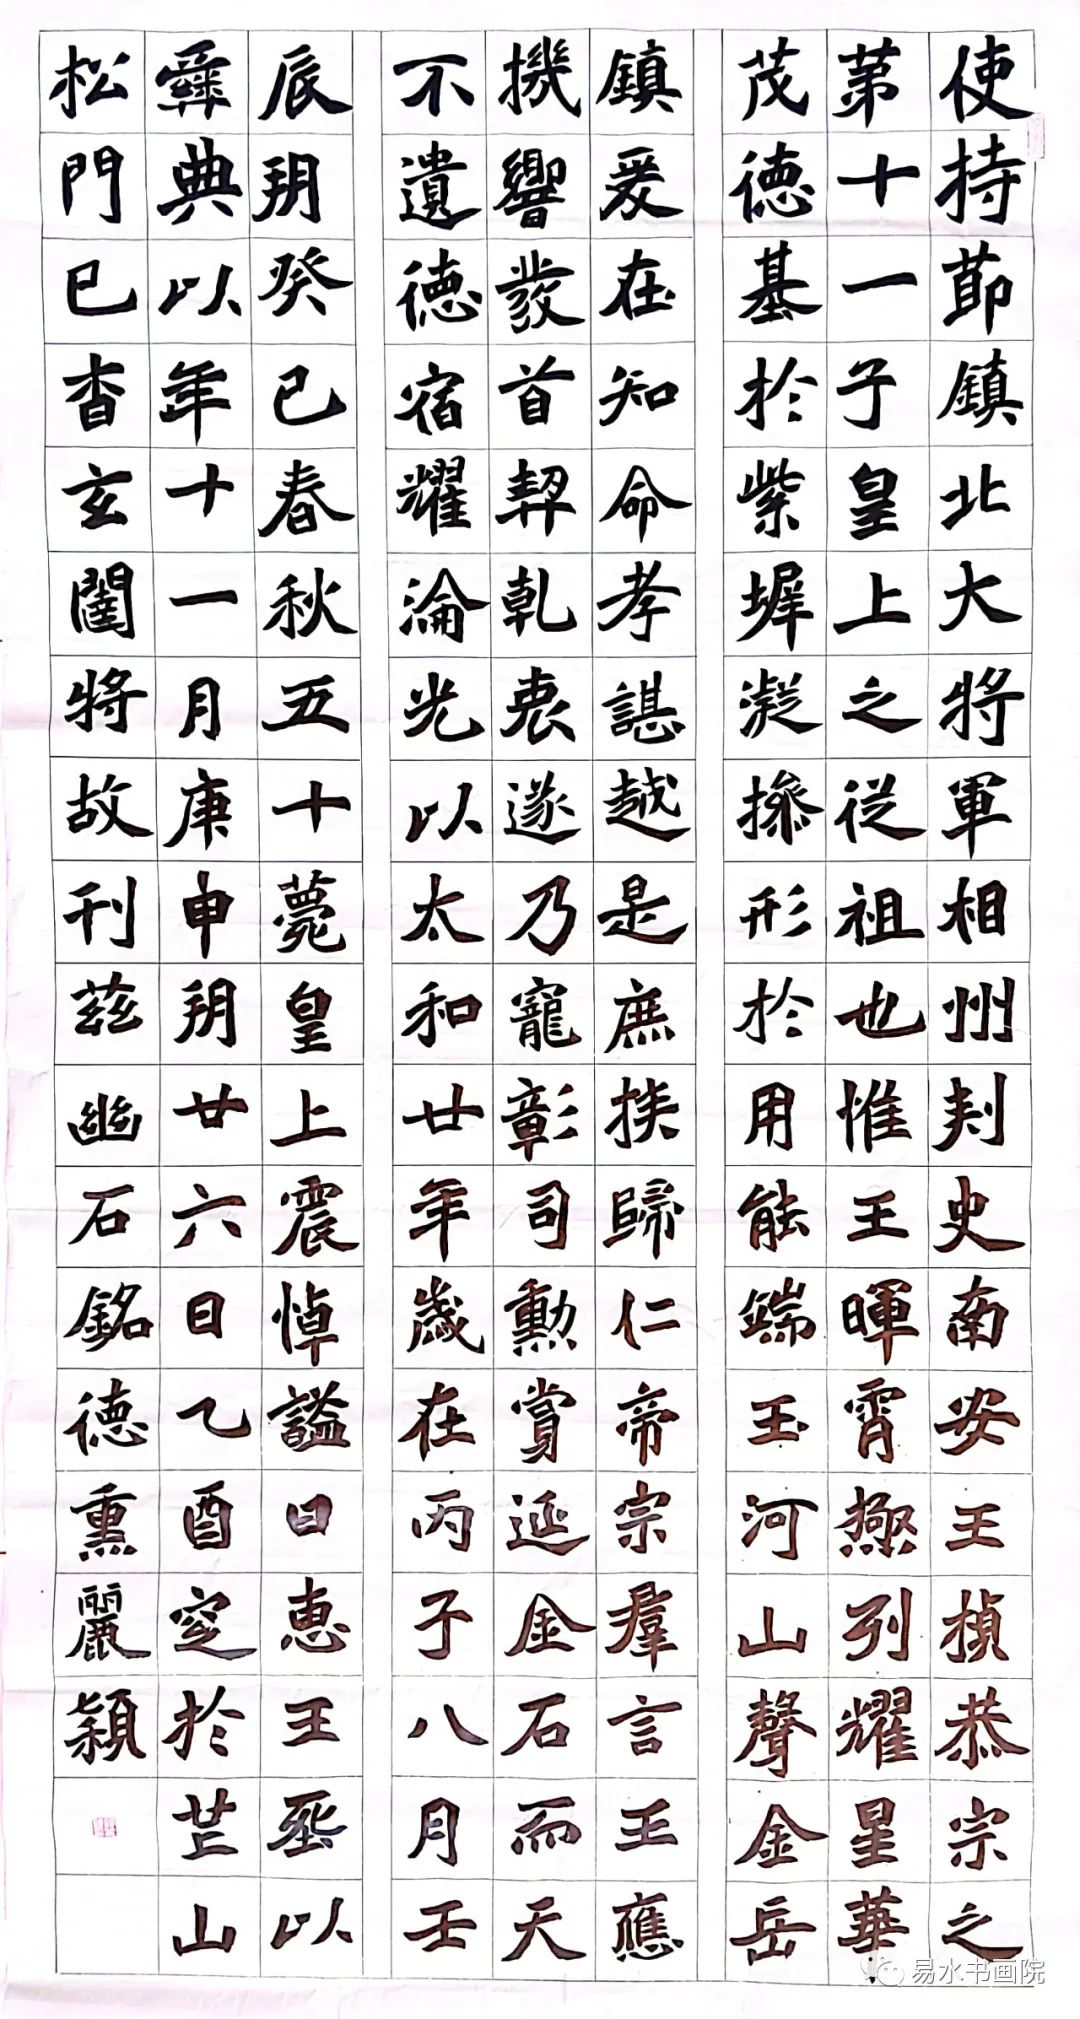 使持莭鎮北大將軍相州刾史南安王楨恭宗之
第十一子皇上之從祖也惟王暉霄極列耀星華
茂德基於紫墀凝操形於用能端玉河山聲金岳
鎮爰在知命孝諶越是庶族歸仁帝宗羣言王應
機響發首契乹衷遂乃寵彰司勳賞延金石而天
不遺德宿耀淪光以太和廿年歲在丙子八月壬
辰朔癸巳春秋五十薨皇上震悼謚曰惠王丞以
彝典以年十一月庚申朔廿六日乙酉窆於芒山
松門已杳玄闥將故刊茲幽石銘德熏麗穎
易水书画院